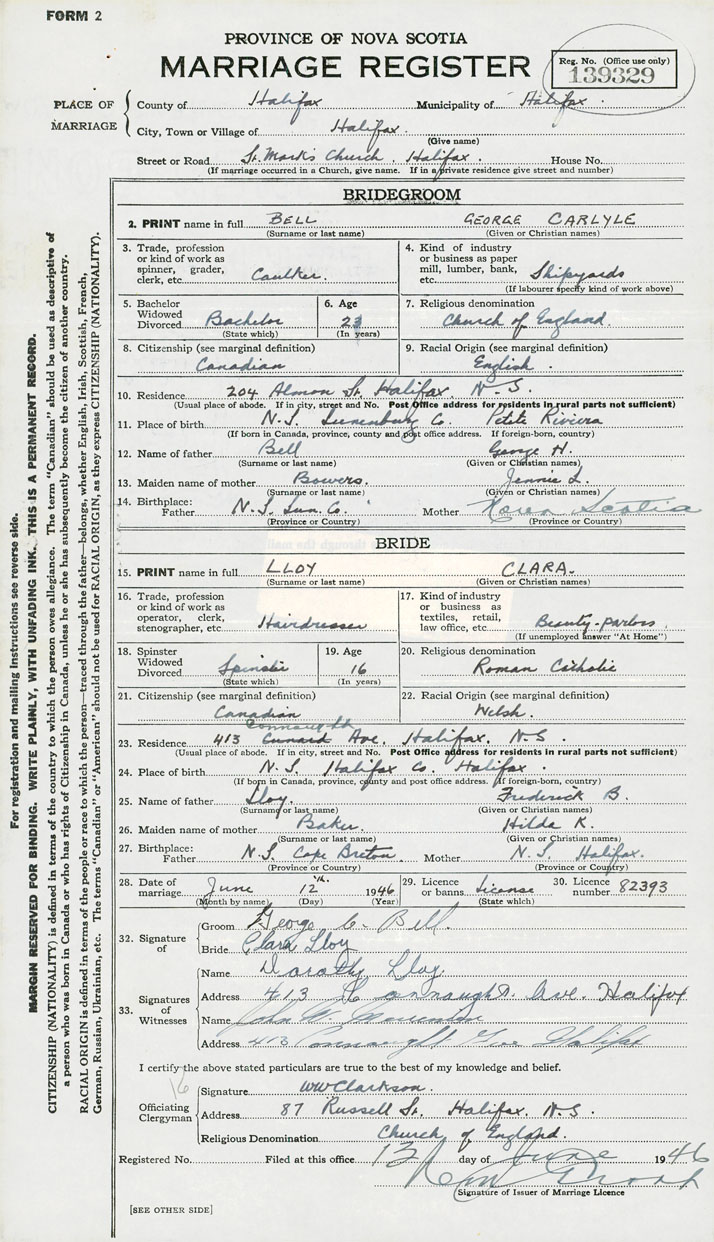 FORM 2
PROVINCE OF NOVA SCOTIA
MARRIAGE REGISTER
Reg. No. (Office use only)
139329
PLACE OF MARRIAGE
County of Halifax Municipality of Halifax.
City, Town or Village of Halifax.
(Give name)
Street or Road St. Mark's Church, Halifax. House No.
(If marriage occurred in a Church, give name. If in a private residence give street and number)
BRIDEGROOM
2. PRINT name in full BELL GEORGE CARLYLE
(Surname or last name) (Given or Christian names)
3. Trade, profession or kind of work as spinner, grader, clerk, etc. Caulker.
4. Kind of industry or business as paper mill, lumber, bank, etc. Shipyards
(If labourer specify kind of work above)
5. Bachelor Widowed Divorced Bachelor
(State which)
6. Age 23
(In years)
7. Religious denomination
Church of England.
8. Citizenship (see marginal definition)
Canadian
9. Racial Origin (see marginal definition)
English.
10. Residence 204 Almon St. Halifax, N.S.
(Usual place of abode. If in city, street and No. Post Office address for residents in rural parts not sufficient)
11. Place of birth N.S. Lunenburg Co. Petite Riviera
(If born in Canada, province, county and post office address. If foreign-born, country)
12. Name of father Bell George H.
(Surname or last name) (Given or Christian names)
13. Maiden name of mother Bowers. Jennie L.
(Surname or last name) (Given or Christian names)
14. Birthplace: Father N.S. Lun. Co. Mother Nova Scotia
(Province or Country) (Province or Country)
BRIDE
15. PRINT name in full LLOY CLARA.
(Surname or last name) (Given or Christian names)
16. Trade, profession or kind of work as operator, clerk, stenographer, etc Hairdresser
17. Kind of industry or business as textiles, retail, law office, etc. Beauty-parlors
(If unemployed answer "At Home")
18. Spinster Widowed Divorced Spinster
(State which)
19. Age 16
(In years)
20. Religious denomination
Roman Catholic
21. Citizenship (see marginal definition)
Canadian
22. Racial Origin (see marginal definition)
Welsh.
Connaught
23. Residence 413 Cunard Ave, Halifax, N.S.
(Usual place of abode. If in city, street and No. Post Office address for residents in rural parts not sufficient)
24. Place of birth N.S. Halifax Co. Halifax.
(If born in Canada, province, county and post office address. If foreign-born, country)
25. Name of father Lloy. Frederick B.
(Surname or last name) (Given or Christian names)
26. Maiden name of mother Baker. Hilda K.
(Surname or last name) (Given or Christian names)
27. Birthplace: Father N.S. Cape Breton. Mother N.S. Halifax.
(Province or Country) (Province or Country)
28. Date of marriage June 12th. 1946
(Month by name) (Day) (Year)
29. Licence or banns License
(State which)
30. Licence number 82393
32. Signature of
Groom George C. Bell.
Bride Clara Lloy
33. Signatures of Witnesses
Name Dorothy Lloy
Address 413 Connaught Ave. Halifax
Name John W.
Address 413 Connaught Ave Halifax
I certify the above stated particulars are true to the best of my knowledge and belief.
16
Officiating Clergyman
Signature WW Clarkson.
Address 87 Russell St. Halifax. N.S.
Religious Denomination Church of England.
Registered No. Filed at this office 12 day of June 1946
Signature of Issuer of Marriage Licence
[SEE OTHER SIDE]
For registration and mailing instructions see reverse side.
MARGIN RESERVED FOR BINDING. WRITE PLAINLY, WITH UNFADING INK. THIS IS A PERMANENT RECORD.
CITIZENSHIP (NATIONALITY) is defined in terms of the country to which the person owes allegiance. The term "Canadian" should be used as descriptive of
a person who was born in Canada or who has rights of Citizenship in Canada, unless he or she has subsequently become the citizen of another country.
RACIAL ORIGIN is defined in terms of the people or race to which the person—traced through the father—belongs, whether English, Irish, Scottish, French,
German, Russian, Ukrainian, etc. The terms "Canadian" or "American" should not be used for RACIAL ORIGIN, as they express CITIZENSHIP (NATIONALITY).